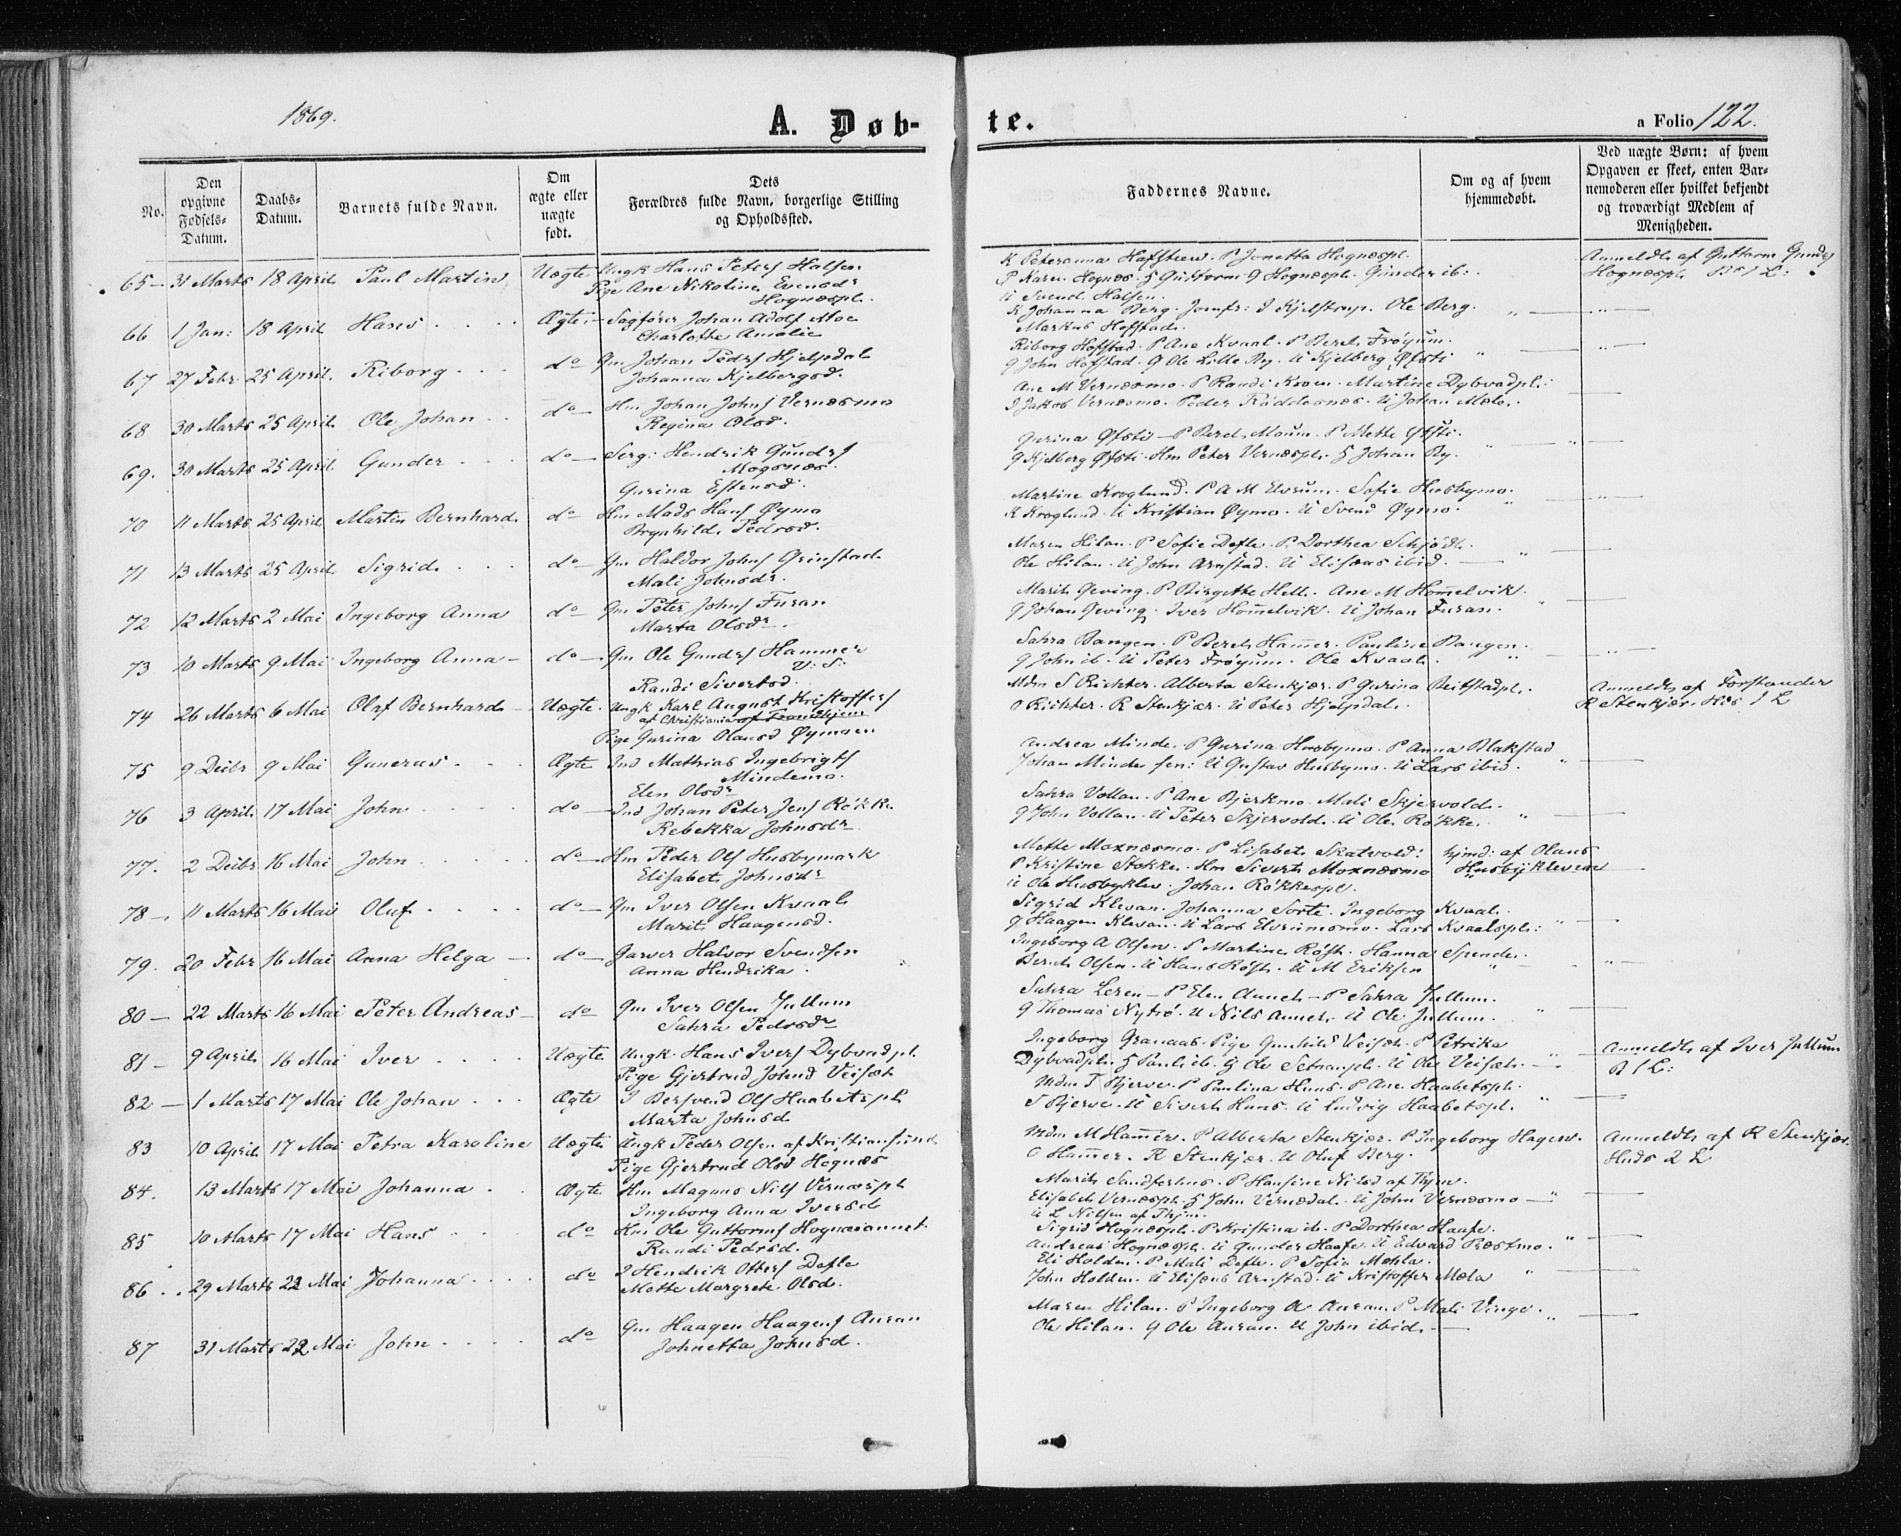 1869.
A. Døb-
te.
a Folio 122.
No.
Den opgivne Fødsels-Datum.
Daabs-Datum.
Barnets fulde Navn.
Om ægte eller uægte født.
Dets Forældres fulde Navn, borgerlige Stilling og Opholdssted.
Faddernes Navne.
Om og af hvem hjemmedøbt.
Ved uægte Børn: af hvem Opgaven er skeet, enten Bar-nemoderen eller hvilket bekjendt og troværdigt Medlem af Menigheden.
65 — 31 Marts 18 April Paul Martin Uægte Ungk Hans Peters Halsen
Pige Ane Nikoline Evensdr
Hognæspl.
K Peteranna Hoffsteen. P Jonetta Hognæspl.
P Karen Hognæs. G Guttorm Hognæspl. Gunder ib:
U Svend Halsen.
Anmeldt af Guttorm Gunders
Hognæspl.
66 1 Jan: 18 April Hans Ægte Sagfører Johan Adolf Moe
Charlotte Amalie
K Johanna Berg. Jomfr: I Kjelstrup. Ole Berg.
Markus Hofstad.
67 27 Febr 25 April Riborg do Gm Johan Peders Hjelpdal
Johanna Kjelbergsd.
Riborg Hofstad. P Ane Kvaal. P Beret Frøyum.
G John Hofstad. G Ole Lille By. U Kjelberg Øfsti
68 30 Marts 25 April Ole Johan do Hm Johan Johns Vernæsmo
Regina Olsd.
Ane M Vernæsmo. P Randi Kroen. Martine Dybvadpl.
I Jakob Vernæsmo. Peder Røddesnæs. U Johan Mæle.
69. 30 Marts 25 April Gunder do Serg: Hendrik Gunders
Mogsnæs.
Gurina Estensd.
Gurina Øfsti — P Beret Moum. P Mette Øfsti.
G Kjelberg Øfsti. Hm Peter Vernæspl. G Johan By.
70 11 Marts 25 April Martin Bernhard do Hm Mads Hans Øymo
Brynhild Pedrsd.
Martine Kroglund. P A M Elvrum. Sofie Husbymo.
K Kroglund. U Kristian Øymo. U Svend Øymo.
71 13 Marts 25 April Sigrid do Gm Haldor Johns Grinstad
Mali Johnsdr.
Maren Hilan. P Sofie Defle. P Dorthea Schjødt.
Ole Hilan. U John Arnstad. U Elisæus ibid.
72 12 Marts 2 Mai Ingeborg Anna do Gm Peter Johns Furan
Marta Olsdr.
Marit Geving. P Birgitte Hell. Ane M Hommelvik.
G Johan Geving. Iver Hommelvik. U Johan Furan.
73 10 Marts 9 Mai Ingeborg Anna — do Gm Ole Gunders Hammer
V: S:
Randi Sivertsd.
Sahra Bangen. P Beret Hammer. Pauline Bangen.
G John ib. U Peter Frøyum. Ole Kvaal.
74 26 Marts 6 Mai Olaf Bernhard Uægte Ungk Karl August Kristoffers
af Christiania af Trondhjem
Pige Gurina Olausd Øymoen
Mdm S Richter. Alberta Stenkjær. P Gurina Reitstadpl.
O Richter. R Stenkjær. U Peter Hjelpdal.
Anmeldt af Forstander
R Stenkjær.
75 9 Decbr 9 Mai Gunerus Ægte Ind Mathias Ingebrigts
Mindemo.
Elen Olsdr
Andrea Minde. P Gurina Husbymo. P Anna Blakstad
Johan Minde sen: U Gustav Husbymo. U Lars ibid.
76 3 April 17 Mai John do Ind Johan Peter Jens Røkke
Rebekka Johnsdr
Sahra Vollan. P Ane Bjerkmo. Mali Skjervold.
G John Vollan. U Peter Skjervold. U Ole Røkke.
77. 2 Decbr 16 Mai John do Hm Peder Ols Husbymark
Elisabet Johnsdr
Mette Moxnæsmo. P Lisabet Skatvold.
P Kristine Stokke. Hm Sivert Moxnæsmo
U Ole Husbyklev. Johan Røkkespl.
hjmd: af Olaus
Husbykleven
78 — 11 Marts 16 Mai Oluf do Gm Iver Olsen Kvaal
Marit Haagensd.
Sigrid Klevan. Johanna Sorte. Ingeborg Kvaal.
G Haagen Klevan. U Lars Elvrumsmo. Lars Kvaalspl.
79. 20 Febr 16 Mai Anna Helga do Garver Halvor Svendsen
Anna Hendrika
Ingeborg A Olsen. P Martine Røst. Hanna Spender.
Bernt Olsen. U Hans Røst. U M Eriksen
80 — 22 Marts 16 Mai Peter Andreas do Gm Iver Olsen Jullum
Sahra Pedrsdr
Sahra Leren — P Elen Aunet — P Sahra Jullum.
G Thomas Nytrø. U Nils Aunet. U Ole Jullum.
81 — 9 April 16 Mai Iver Uægte Ungk. Hans Ivers Dybvadpl.
Pige Gjertrud Johnsd Veiset
Ingeborg Granaas. Pige Gunhild Veiset. P Petrika
Dybvadpl. G Paul ib. G Ole Setranpl. U Ole Veiset.
Anmeldt af Iver Jullum
82 — 1 Marts 17 Mai Ole Johan Ægte I Bersvend Ols Haabetspl
Marta Johnsd
Mdm T Bjerve. P Paulina Huus. P Ane Haabetspl.
S Bjerve. U Sivert Huus. U Ludvig Haabetspl.
83 10 April 17 Mai Petra Karoline Uægte Ungk Peder Olsen af Kristiansund
Pige Gjertrud Olsd Hognæs
Mdm M Hammer. P Alberta Stenkjær. P Ingeborg Hagen.
O Hammer. R Stenkjær. U Oluf Berg.
Anmeldt af R Stenkjær.
84. 13 Marts 17 Mai Johanna Ægte Hm Magnus Nils Vernæspl
Ingeborg Anna Iversd
Marit Sandferhus. P Hansine Nilsd af Thjm.
Elisabet Vernæspl. G John Vernædal. U John Vernæsmo
U L Nilsen af Thjm.
85 10 Marts 17 Mai Hans do Hm Ole Guttorms Hognæsaunet
Randi Pedrsd.
Sigrid Hognæspl. P Kristina ib. P Dorthea Haafe.
Andreas Hognæspl. U Gunder Haafe. U Edvard Præstmo.
86. 29 Marts 22 Mai Johanna do I Hendrik Otters Defle
Mette Margrete Olsd.
Eli Holden. P Mali Defle. P Sofia Mæhla.
John Holden. U Elisæus Arnstad. U Kristoffer Mæla
87 31 Marts 22 Mai John do Gm Haagen Haagens Auran
Johnetta Johnsd.
Maren Hilan. P Ingeborg A Auran. P Mali Vinge.
Ole Hilan. G Ole Auran. U John ibid.